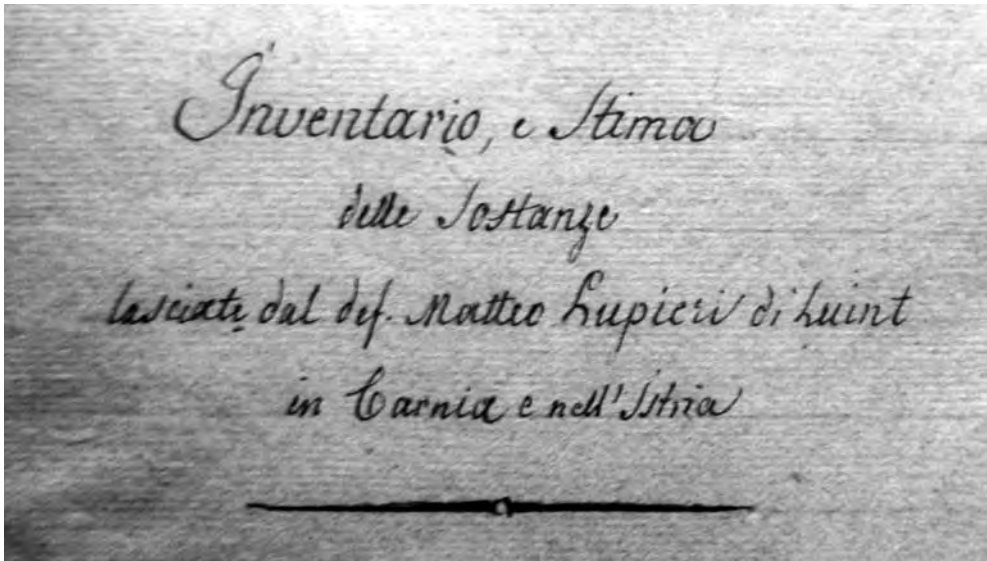 Inventario, e Stima
delle Sostanze
lasciate dal def. Matteo Lupieri di Luint
in Carnia e nell'Istria